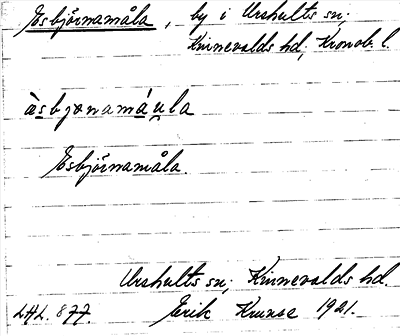 Esbjörnamåla, by i Urshults sn;
Kinnevalds hd; Kronob. l.
àsbjænamáu̯la
Esbjörnamåla.
Urshults sn; Kinnevalds hd.
L.H.L. 877. Erik 1921.